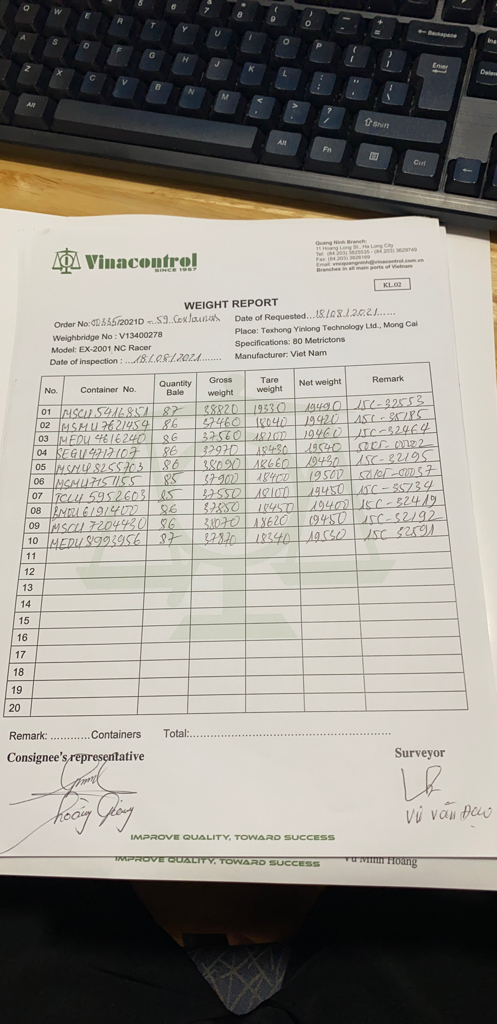 Backspace
Enter
Shift
Alt
Alt
Fn
Ctrl
Vinacontrol
SINCE 1957
Quang Ninh Branch:
11 Hoang Long St., Ha Long City
Branches in all main ports of Vietnam
KL.02
WEIGHT REPORT
Order No: 00335/2021D
Date of Requested 18/08/2021
Weighbridge No : V13400278
Place: Texhong Yinlong Technology Ltd., Mong Cai
Model: EX-2001 NC Racer
Specifications: 80 Metrictons
Date of inspection : 18/08/2021
Manufacturer: Viet Nam
No. Container No. Quantity Bale Gross weight Tare weight Net weight Remark
01 MSCU 5416851 87 38820 19330 19490 15C-32553
02 MSMU 7621454 86 37460 18040 19420 15C-35185
03 MEDU 4616240 86 37560 18100 19460 15C-32464
04 SEGU 4717107 86 37970 18430 19540
05 MSMU 8255703 86 38090 18660 19430 15C-32195
06 85 37900 18400 19500
07 TCLU 5952603 85 37550 18100 19450 15C-35134
08 6191400 86 37850 18450 19400 15C-32419
09 MSCU 7204430 86 38070 18620 19450 15C-32192
10 MEDU 8993956 87 37870 18340 19530 15C 32591
11
12
13
14
15
16
17
18
19
20
Remark: ............Containers Total:
Consignee's representative
Surveyor
Hoàng
Vũ Văn Đạo
IMPROVE QUALITY, TOWARD SUCCESS
IMPROVE QUALITY, TOWARD SUCCESS
Vu Minh Hoang